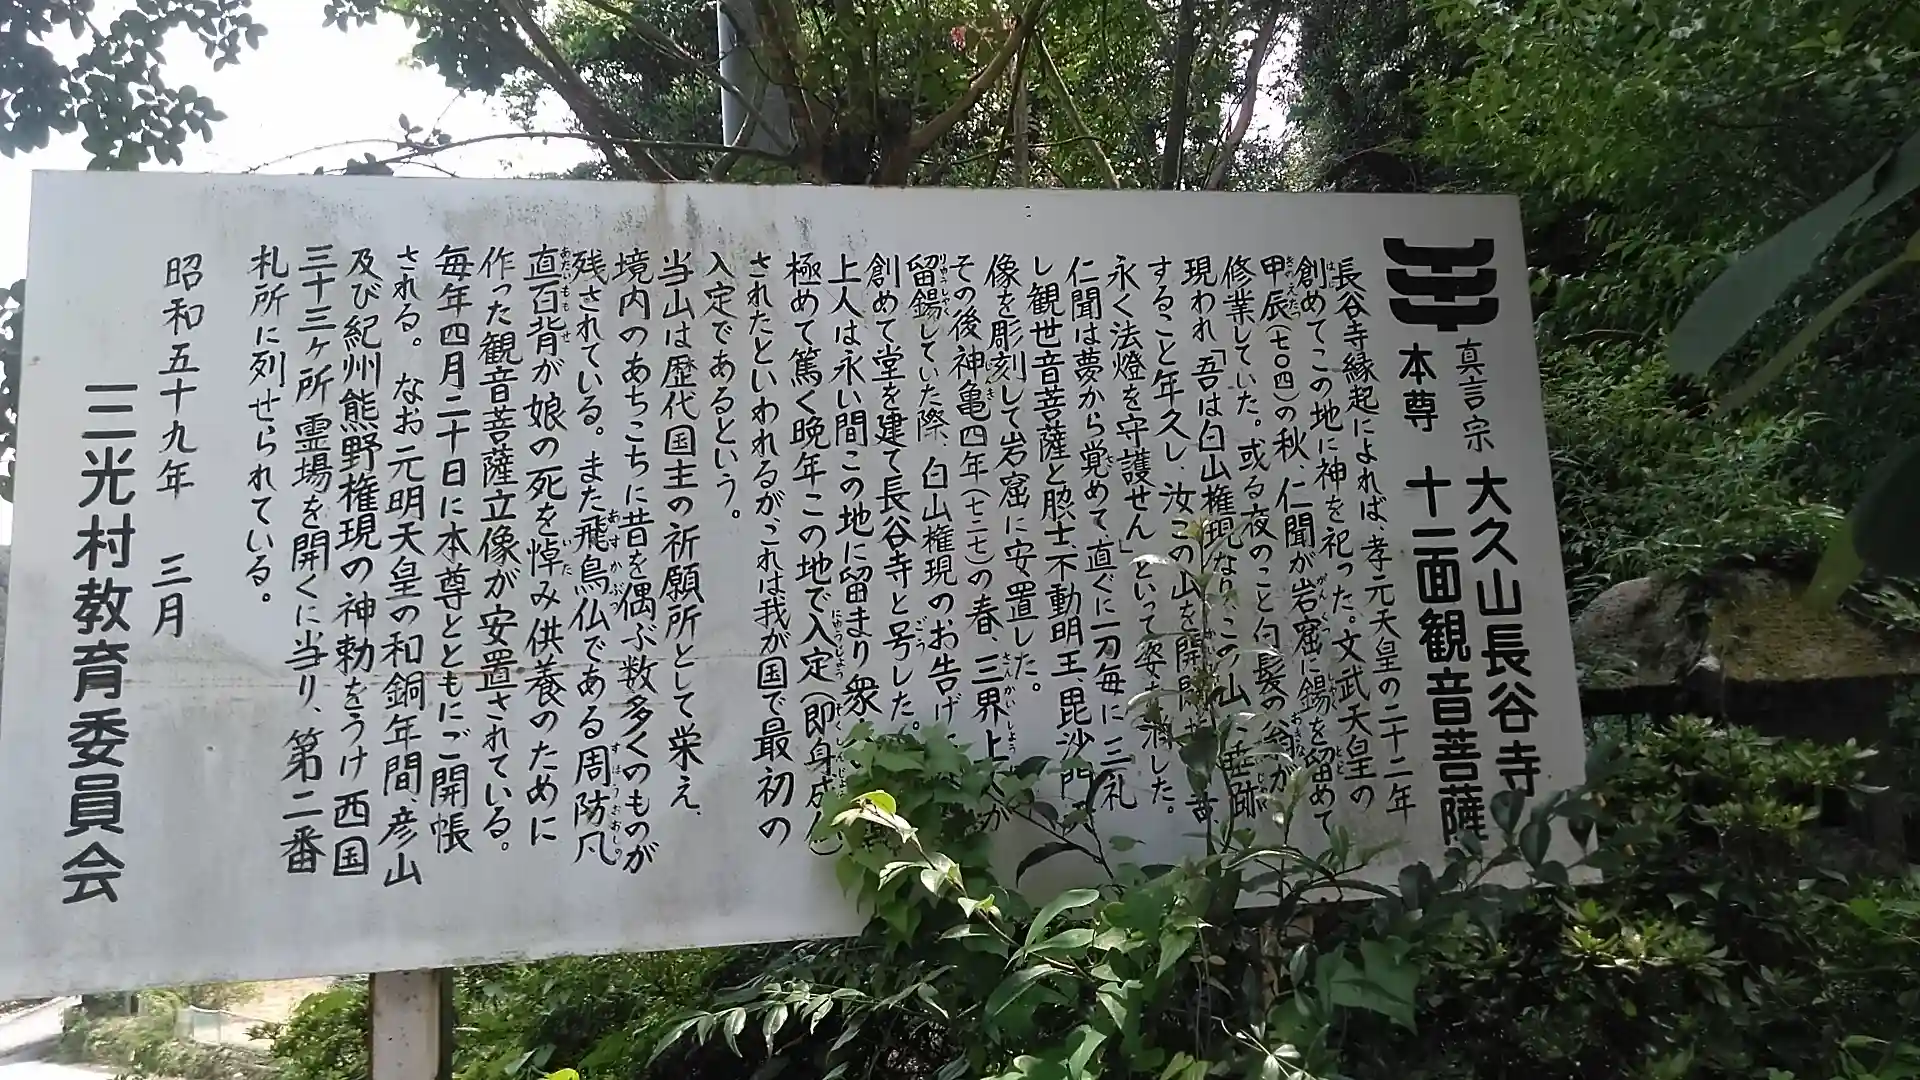 真言宗 大久山長谷寺
本尊 十一面観音菩薩
長谷寺縁起によれば、孝元天皇の二十二年
創めてこの地に神を祀った。文武天皇の
甲辰(七〇四)の秋、仁聞が岩窟に錫を留めて
修業していた。或る夜のこと白髪の翁が
現われ「吾は白山権現なり、この山に垂跡
すること年久し、汝この山を開
永く法燈を守護せん」といって姿を消した。
仁聞は夢から覚めて直ぐに一刀毎に三礼
し観世音菩薩と脇士不動明王、毘沙門
像を彫刻して岩窟に安置した。
その後神亀四年(七二七)の春、三界上人が
留錫していた際、白山権現のお告げ
創めて堂を建て長谷寺と号した。
上人は永い間この地に留まり衆
極めて篤く晩年この地で入定(即身成仏)
されたといわれるがこれは我が国で最初の
入定であるという。
当山は歴代国主の祈願所として栄え、
境内のあちこちに昔を偶ぶ数多くのものが
残されている。また飛鳥仏である周防凡
直百背が娘の死を悼み供養のために
作った観音菩薩立像が安置されている。
毎年四月二十日に本尊とともにご開帳
される。なお元明天皇の和銅年間、彦山
及び紀州熊野権現の神勅をうけ西国
三十三ヶ所霊場を開くに当り、第二番
札所に列せられている。
昭和五十九年 三月
三光村教育委員会